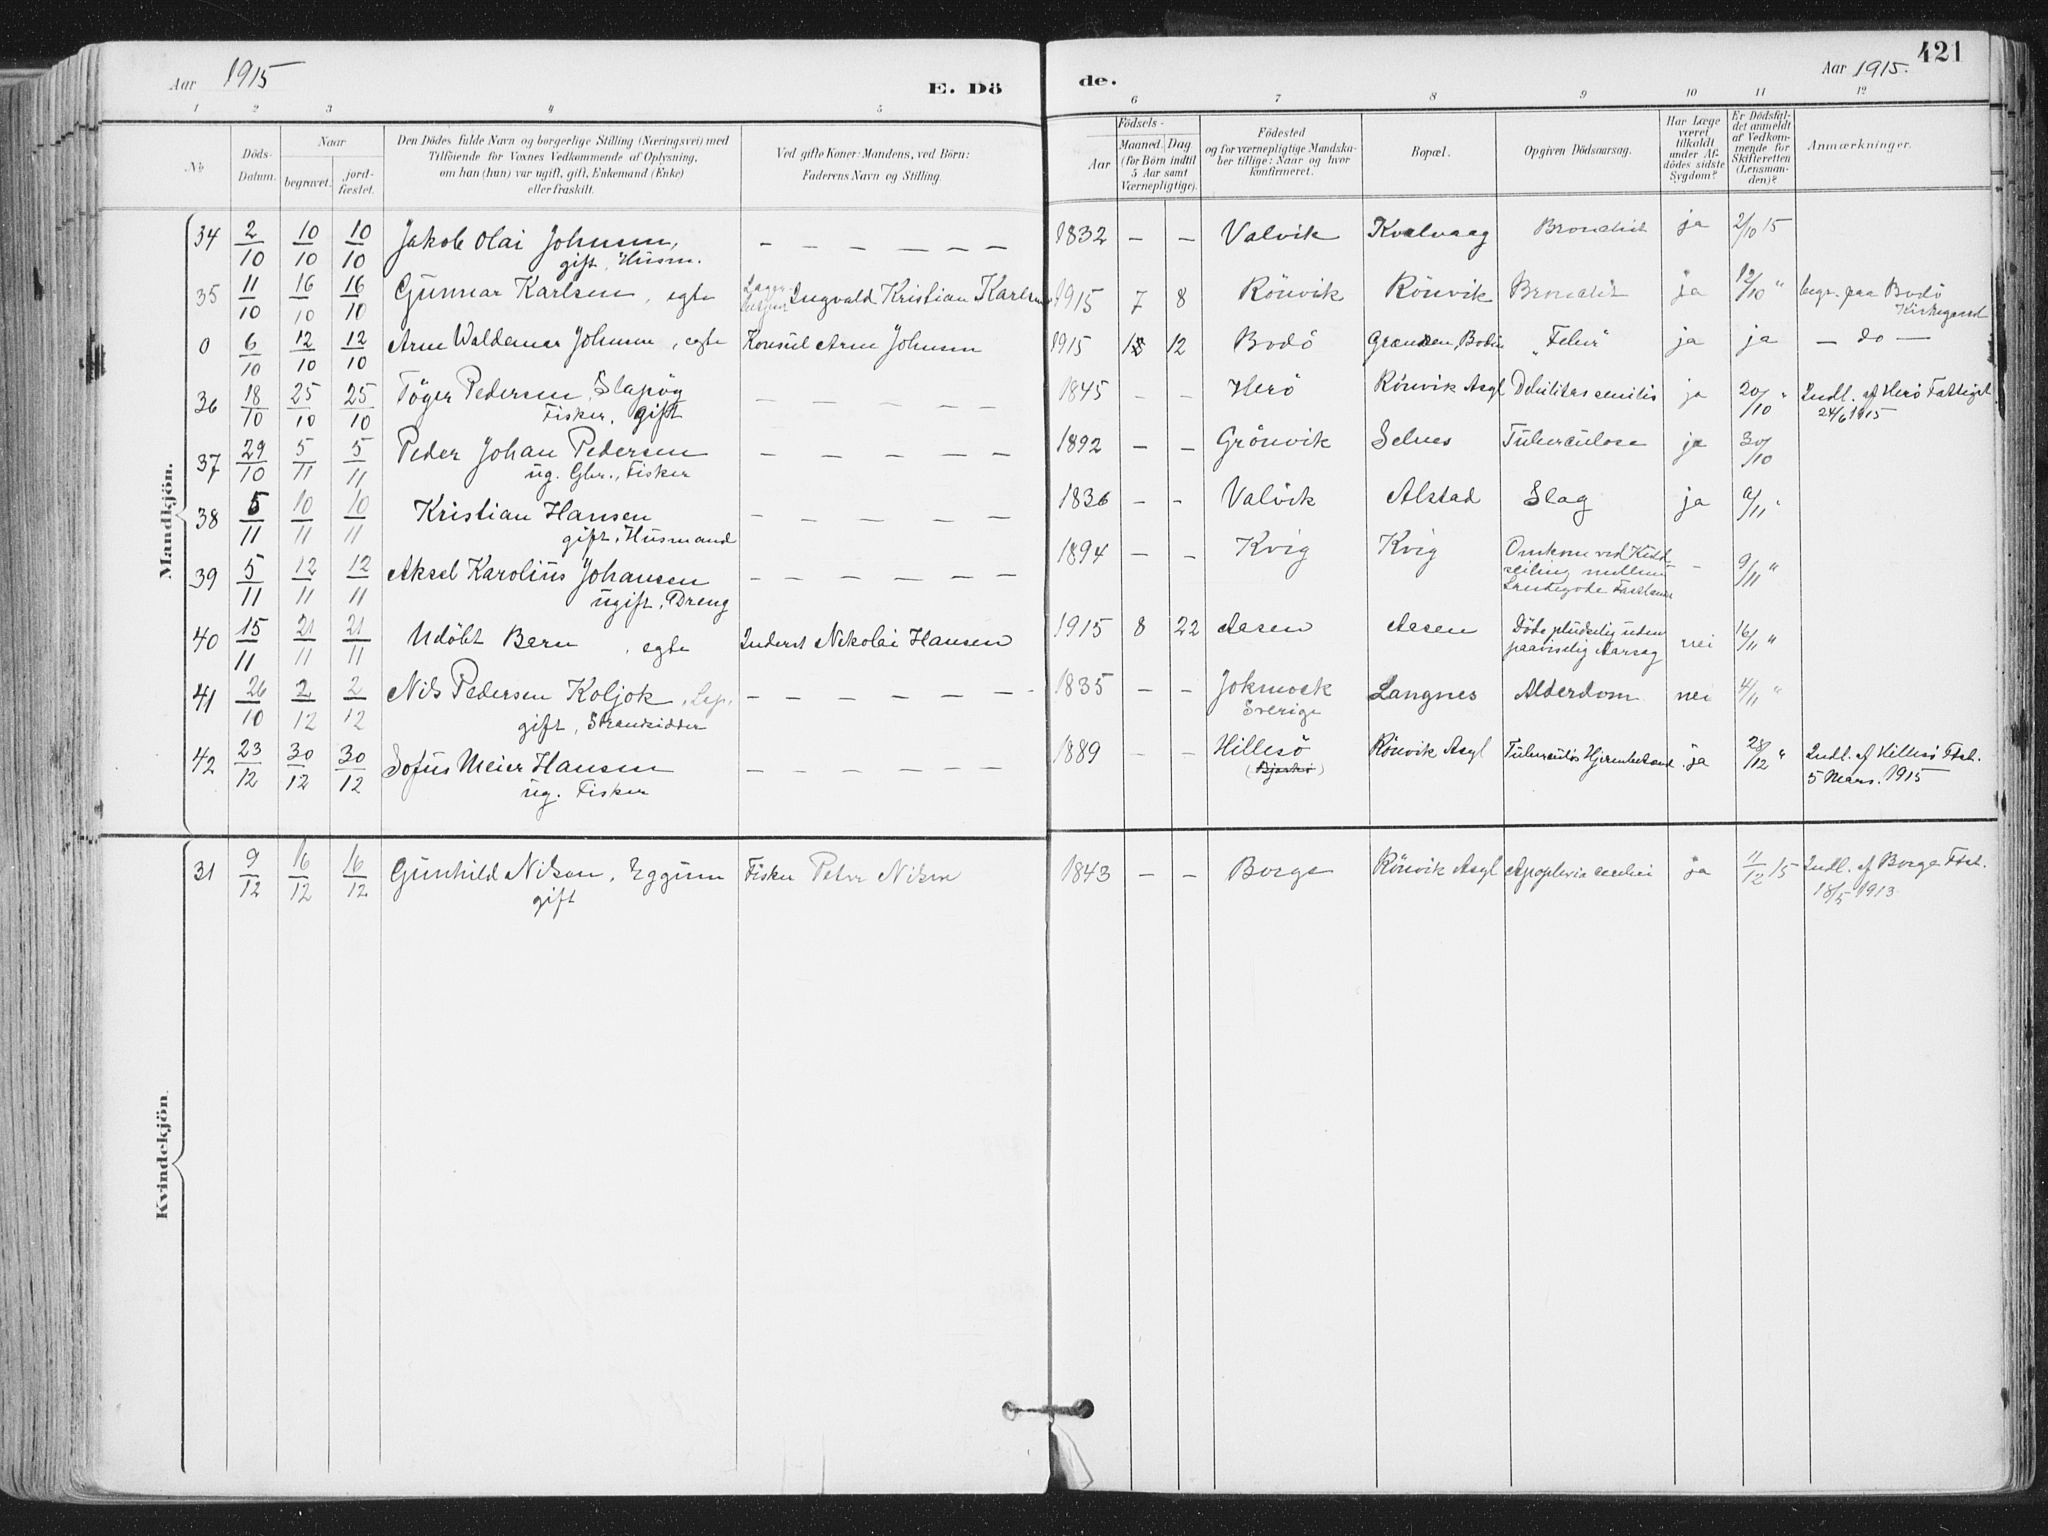 Aar 1915
E. Dö
de.
Aar 1915.
421
1 2 3 4 5 6 7 8 9 10 11 12
No
Döds-
Datum.
Naar
begravet.
jord-
fæstet.
Den Dödes fulde Navn og borgerlige Stilling (Næringsvei) med
Tilföiende for Voxnes Vedkommende af Oplysning,
om han (hun) var ugift, gift, Enkemand (Enke)
eller fraskilt.
Ved gifte Koner: Mandens, ved Börn:
Faderens Navn og Stilling.
Födsels-
Aar
Maaned.
Dag
(for Börn indtil
5 Aar samt
Værnepligtige).
Födested
og for værnepligtige Mandska-
ber tillige: Naar og hvor
konfirmeret.
Bopæl.
Opgiven Dödsaarsag.
Har Læge
været
tilkaldt
under Af-
dödes sidste
Sygdom?
Er Dödsfal-
det anmeldt
af Vedkom-
mende for
Skifteretten
(Lensman-
den)?
Anmærkninger.
Mandkjön.
34 2/10 10/10 10/10 Jakob Olai Johnsen, — — — — — — 1832 — — Valvik Kvalvaag Bronchit ja 2/10 15
gift, Husm.
35 11/10 16/10 16/10 Gunnar Karlsen, egte Ingvald Kristian Karlsen 1915 7 8 Rönvik Rönvik Bronchit ja 12/10 " begr. paa Bodö
Kirkegaard
0 6/10 12/10 12/10 Arne Waldemar Johnsen, egte Konsul Arne Johnsen 1915 12 Bodö Bodin "Feber" ja ja — do —
36 18/10 25/10 25/10 Töger Pedersen, Slapög — — — — — — 1845 — — Herö Rönvik Asyl Debilitas senilis ja 20/10 " Indl. af Herö Fattigst.
Fisker, gift 24/6 1915
37 29/10 5/11 5/11 Peder Johan Pedersen — — — — — — 1892 — — Grönvik Selnes Tuberculose ja 30/10
ug. Gbr., Fisker
38 5/11 10/11 10/11 Kristian Hansen — — — — — — 1836 — — Valvik Alstad Slag ja /11 "
gift, Husmand
39 5/11 12/11 12/11 Aksel Karolius Johansen — — — — — — 1894 — — Kvig Kvig Omkom ved - 9/11 "
ugift, Dreng seiling mellem
40 15/11 21/11 21/11 Udöbt Barn, egte Inderst Nikolai Hansen 1915 8 22 Aasen Aasen Döde pludselig uden nei 16/11 "
paaviselig Aarsag
41 26/10 2/12 2/12 Nils Pedersen Koljok, Lap, — — — — — — 1835 — — Jokmock Langnes Alderdom nei 4/11 "
gift, Strandsidder Sverige
42 23/12 30/12 30/12 Sofus Meier Hansen — — — — — — 1889 — — Hillesö Rönvik Asyl Tuberculös Hjernebetænd. ja 28/12 " Indl. af Hillesö Ftst.
ug. Fisker (Bjarkö) 5 Mars. 1915
Kvindekjön.
31 9/12 16/12 16/12 Gunhild Nilsen, Eggum Fisker Peter Nilsen 1843 — — Borge Rönvik Asyl Apoplexia cerebri ja 11/12 15 Indl. af Borge Ftst.
gift 18/5 1913